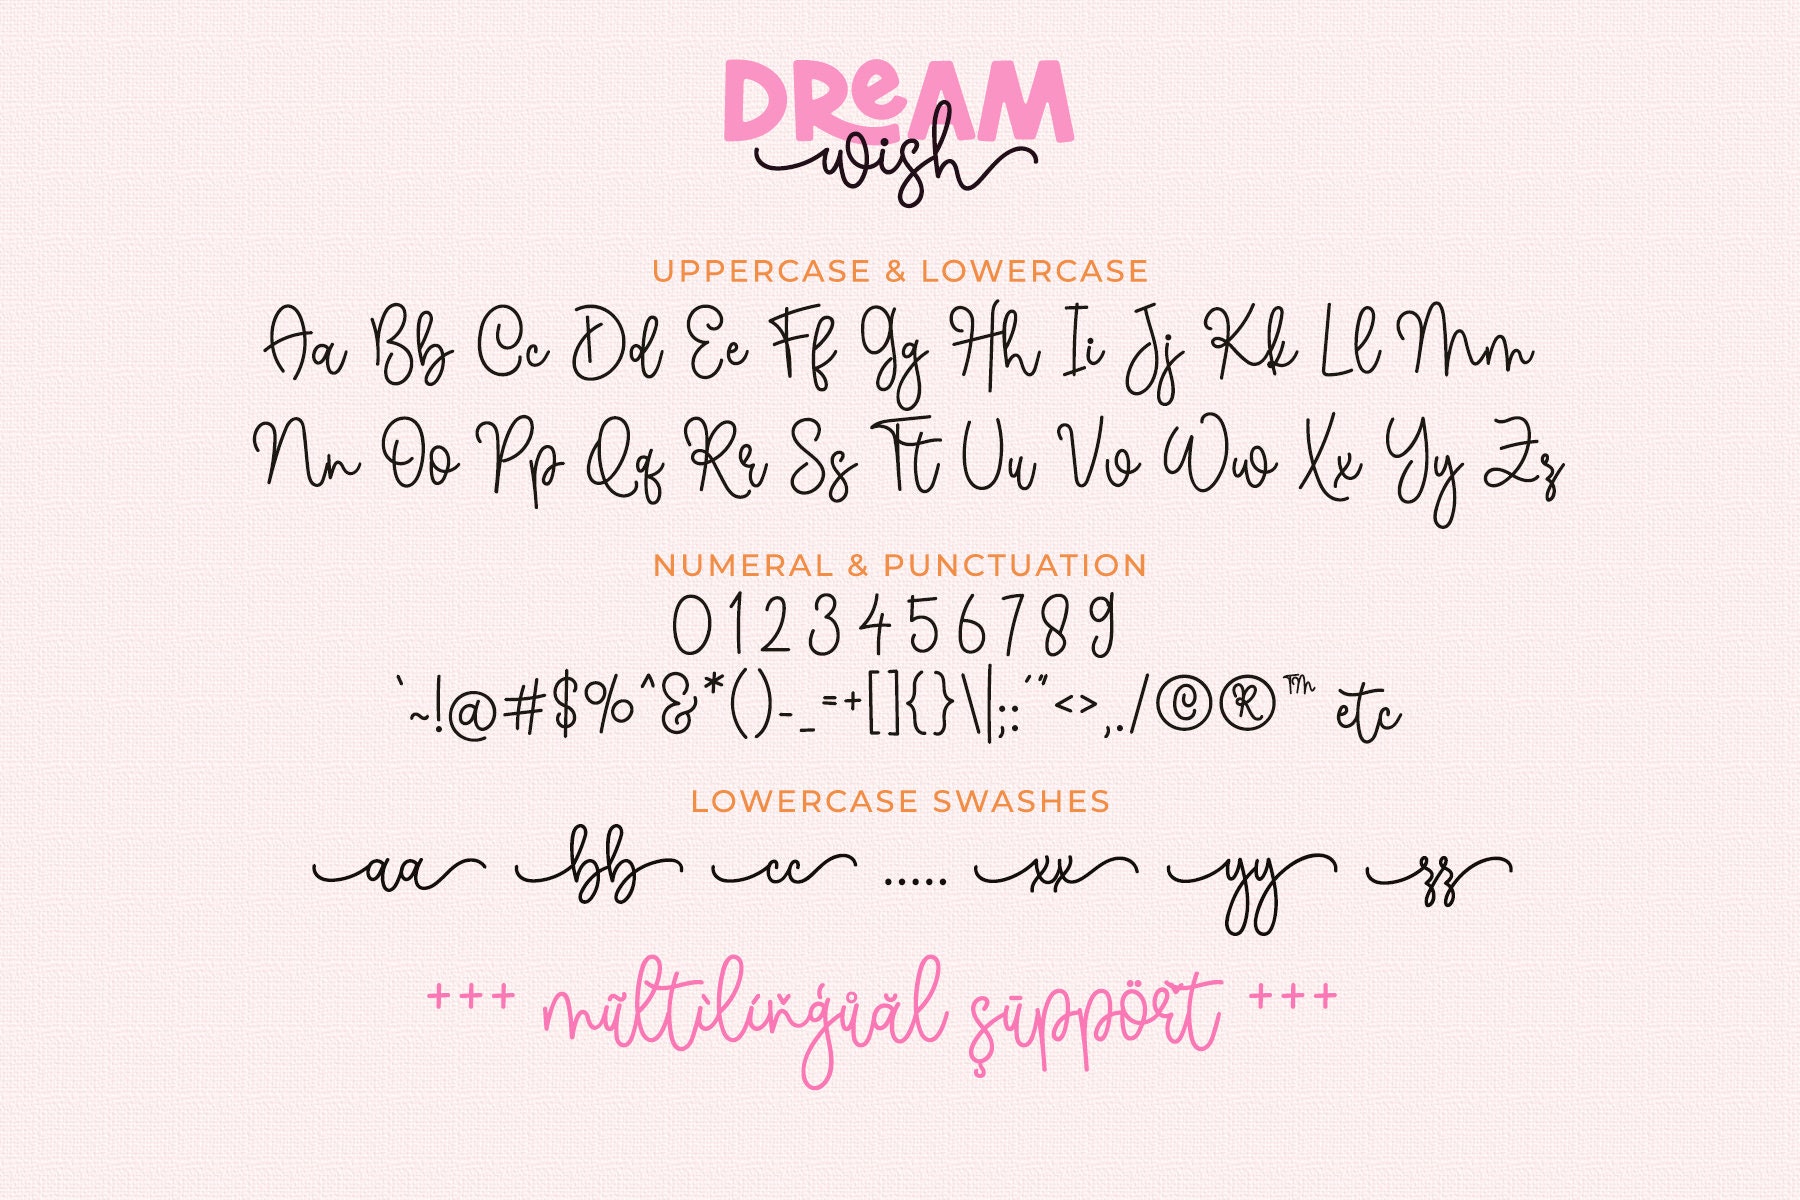 DReAM
wish
UPPERCASE & LOWERCASE
Aa Bb Cc Dd Ee Ff Gg Hh Ii Jj Kk Ll Mm
Nn Oo Pp Qq Rr Ss Tt Uu Vv Ww Xx Yy Zz
NUMERAL & PUNCTUATION
0 1 2 3 4 5 6 7 8 9
`~!@#$%^&*()-_=+[]{}\|;:'"<>,./©®™ etc
LOWERCASE SWASHES
aa bb cc ..... xx yy zz
+++ mũltìlíňģůăl şūppörť +++